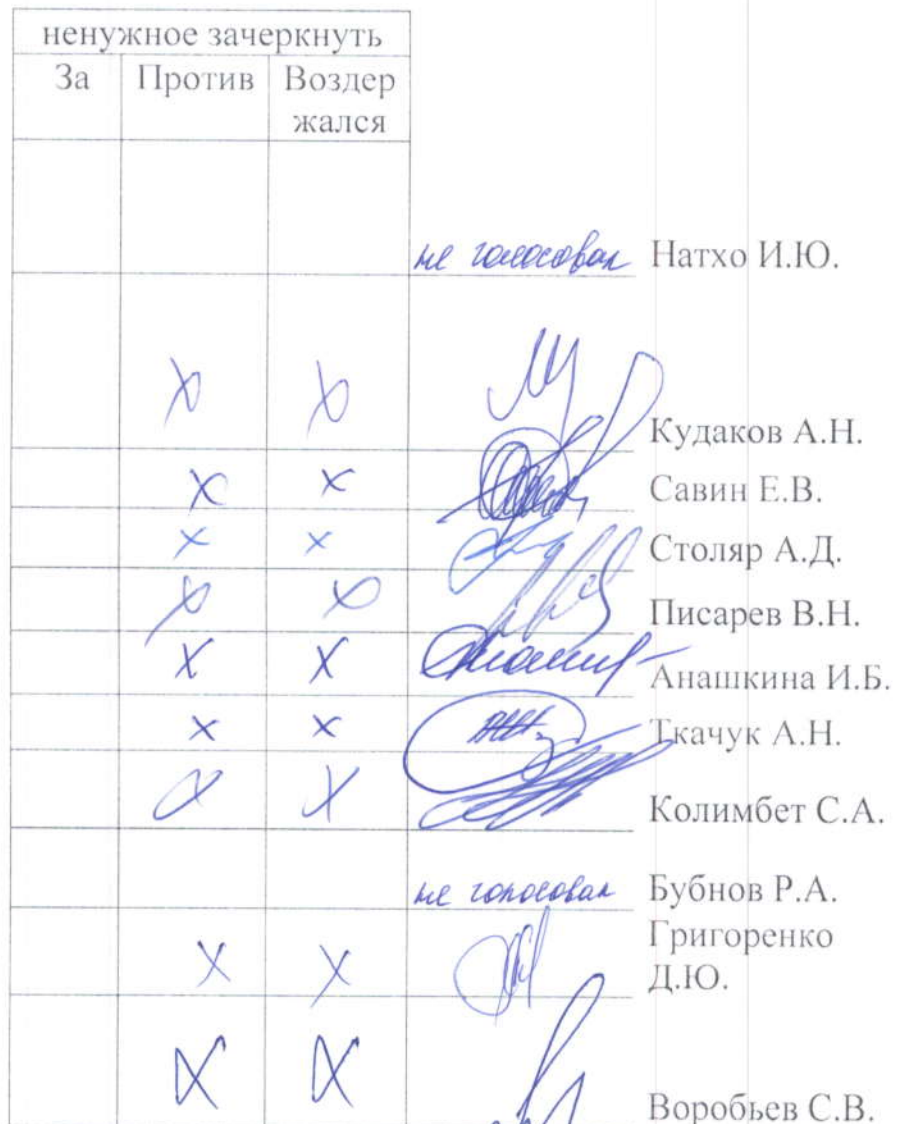 ненужное зачеркнуть
За Против Воздер
жался
не голосовал Натхо И.Ю.
Х Х Кудаков А.Н.
Х Х Савин Е.В.
Х Х Столяр А.Д.
Х Х Писарев В.Н.
Х Х Анашкина И.Б.
Х Х Ткачук А.Н.
Х Х Колимбет С.А.
не голосовал Бубнов Р.А.
Григоренко
Х Х Д.Ю.
Х Х Воробьев С.В.